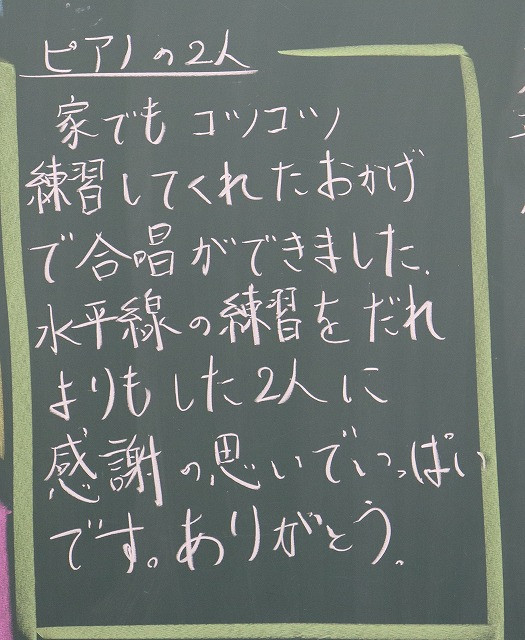 ピアノの2人
家でもコツコツ
練習してくれたおかげ
で合唱ができました.
水平線の練習をだれ
よりもした2人に
感謝の思いでいっぱい
です。ありがとう.